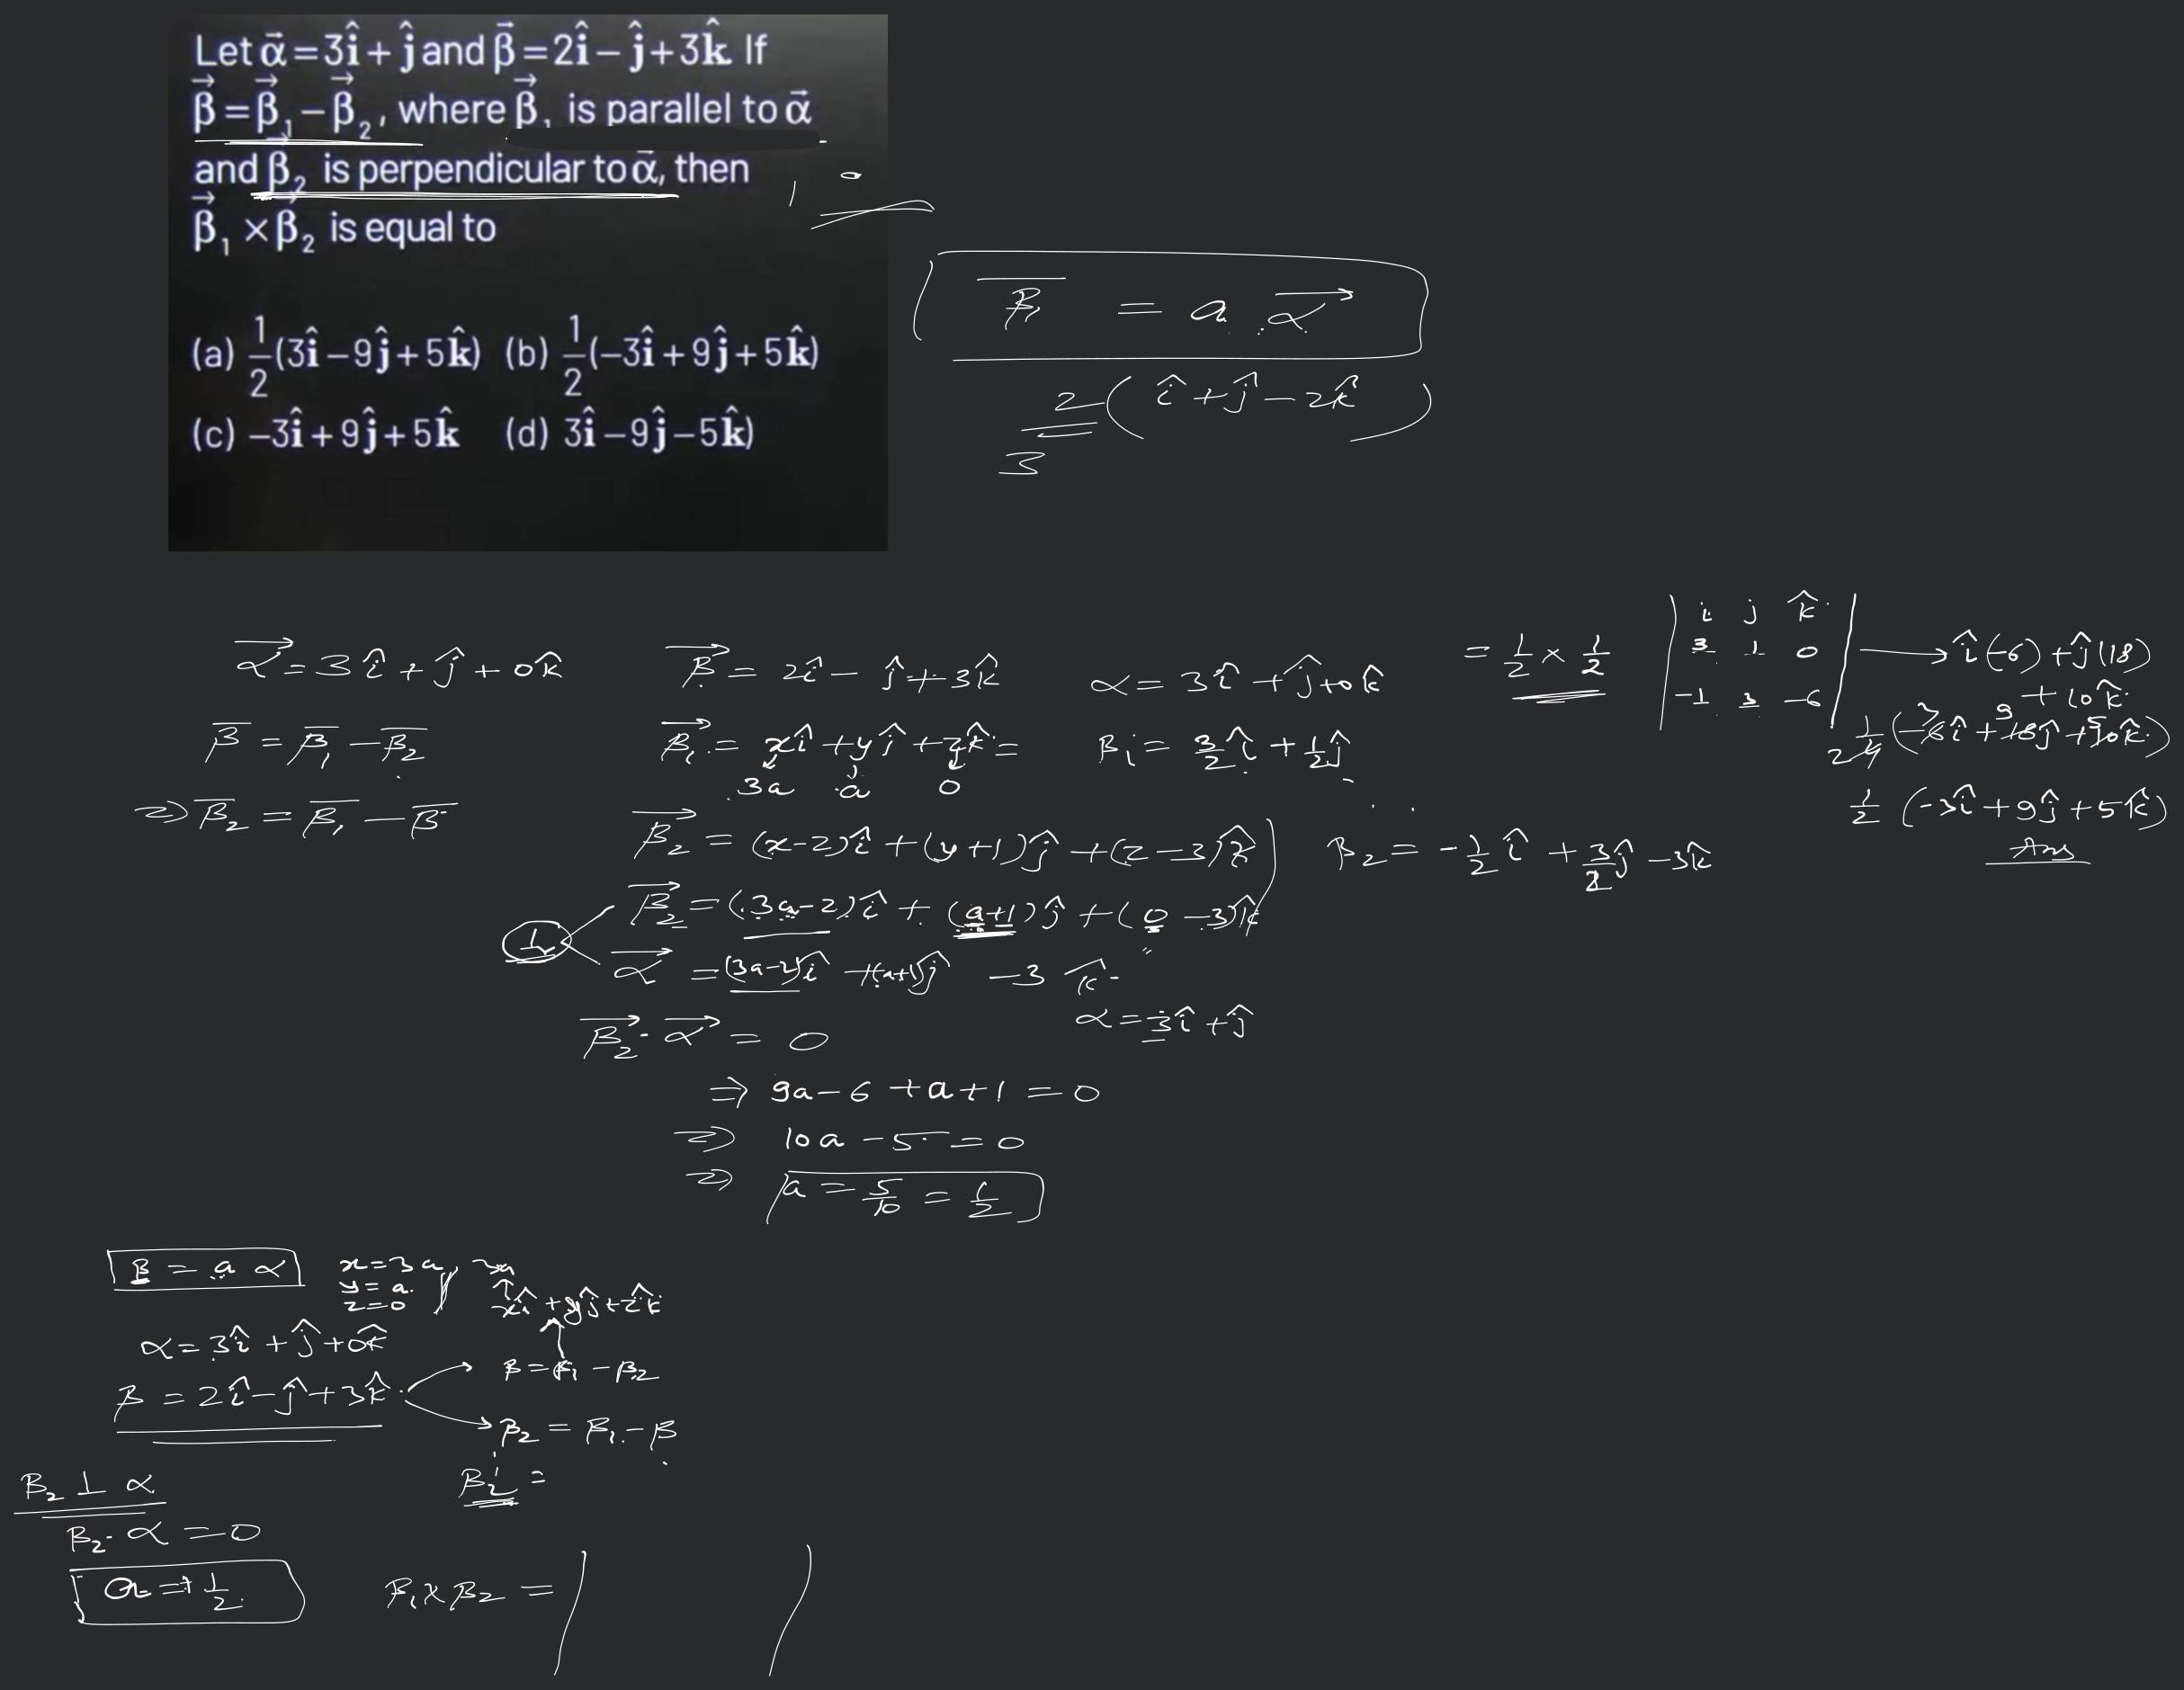 Let α⃗ = 3î + ĵ and β⃗ = 2î − ĵ + 3k̂. If
β⃗ = β⃗₁ − β⃗₂, where β⃗₁ is parallel to α⃗
and β⃗₂ is perpendicular to α⃗, then
β⃗₁ × β⃗₂ is equal to
(a) 1/2(3î − 9ĵ + 5k̂) (b) 1/2(−3î + 9ĵ + 5k̂)
(c) −3î + 9ĵ + 5k̂ (d) 3î − 9ĵ − 5k̂)
β₁ = a α⃗
2/3 (î + ĵ − 2k̂)
α⃗ = 3î + ĵ + 0k̂
β = β₁ − β₂
⇒ β₂ = β₁ − β
β⃗ = 2î − ĵ + 3k̂
β⃗₁ = xî + yĵ + zk̂ =
3a a 0
β⃗₂ = (x−2)î + (y+1)ĵ + (z−3)k̂
β⃗₂ = (3a−2)î + (a+1)ĵ + (0−3)k̂
⊥
α⃗ = (3a−2)î + (a+1)ĵ − 3k̂
α = 3î + ĵ
β⃗₂ · α⃗ = 0
⇒ 9a − 6 + a + 1 = 0
⇒ 10a − 5 = 0
⇒ a = 5/10 = 1/2
α = 3î + ĵ + 0k̂
β₁ = 3/2 î + 1/2 ĵ
β₂ = −1/2 î + 3/2 ĵ − 3k̂
= 1/2 × 1/2
i j k̂
3 1 0
−1 3 −6
→ î(−6) + ĵ(18)
+ 10k̂
1/4 (−6î + 18ĵ + 10k̂)
1/2 (−3î + 9ĵ + 5k̂)
Ans
β = a α
x = 3a
y = a
z = 0
xî + yĵ + zk̂
α = 3î + ĵ + 0k̂
β = β₁ − β₂
β = 2î − ĵ + 3k̂
β₂ = β₁ − β
β₂ =
β₂ ⊥ α
β₂ · α = 0
a = +1/2
β₁ × β₂ =